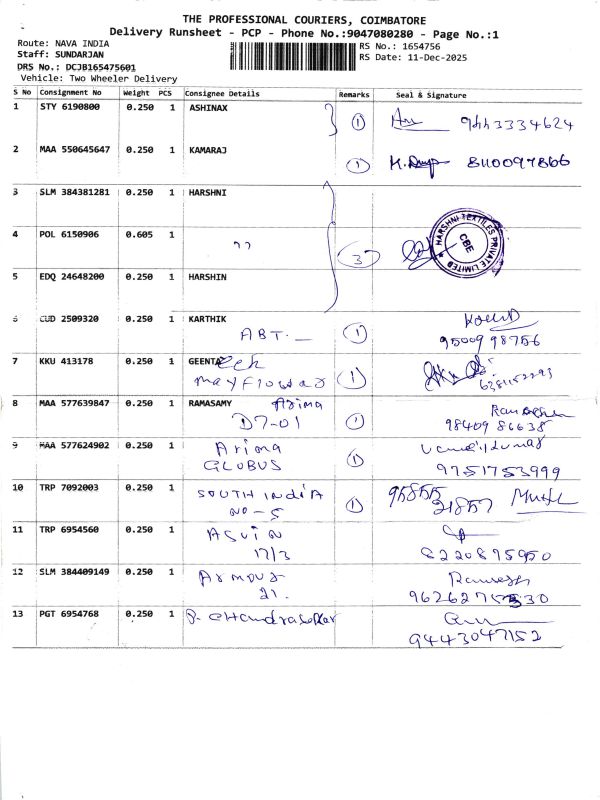 THE PROFESSIONAL COURIERS, COIMBATORE
Delivery Runsheet - PCP - Phone No.:9047080280 - Page No.:1
Route: NAVA INDIA
RS No.: 1654756
Staff: SUNDARJAN
RS Date: 11-Dec-2025
DRS No.: DCJB165475601
Vehicle: Two Wheeler Delivery
S No Consignment No Weight PCS Consignee Details Remarks Seal & Signature
1 STY 6190800 0.250 1 ASHINAX
1 9443334624
2 MAA 550645647 0.250 1 KAMARAJ
1 8110097866
3 SLM 384381281 0.250 1 HARSHNI
4 POL 6150906 0.605 1
" 3
HARSHNI TEXTILES PRIVATE LIMITED
CBE
5 EDQ 24648200 0.250 1 HARSHIN
6 CUD 2509320 0.250 1 KARTHIK
ABT. 1
9500998756
7 KKU 413178 0.250 1 GEENTA
mayflower 1
8 MAA 577639847 0.250 1 RAMASAMY Arima
D7-01 1
98409 86638
9 MAA 577624902 0.250 1 Arima
GLOBUS 1
9751753999
10 TRP 7092003 0.250 1 SOUTH INDIA
NO-5 1
95855
21857
11 TRP 6954560 0.250 1 ASUIN
17/3
8220895950
12 SLM 384409149 0.250 1 Armour
21. Ramesh
13 PGT 6954768 0.250 1 P. CHandrasekar
9443047152